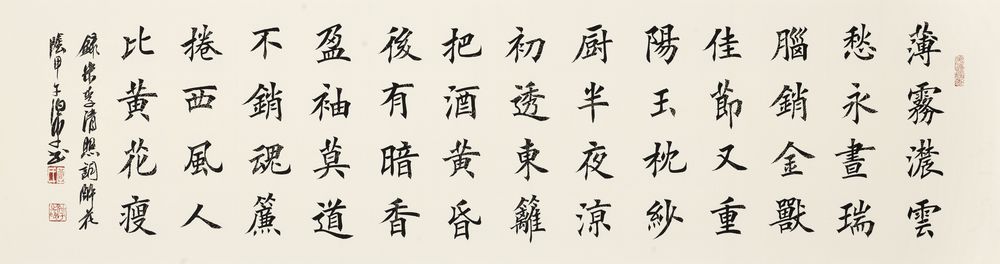 薄霧濃雲
愁永晝瑞
腦銷金獸
佳節又重
陽玉枕紗
厨半夜涼
初透東籬
把酒黃昏
後有暗香
盈袖莫道
不銷魂簾
捲西風人
比黃花瘦
錄宋李清照詞醉花
陰甲午